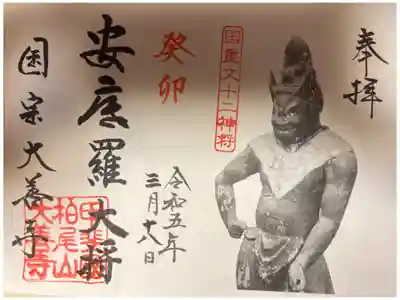 奉拝
国重文十二神将
癸卯
令和五年
三月十八日
安底羅大将
国宝大善寺
甲斐国
柏尾山
大善寺